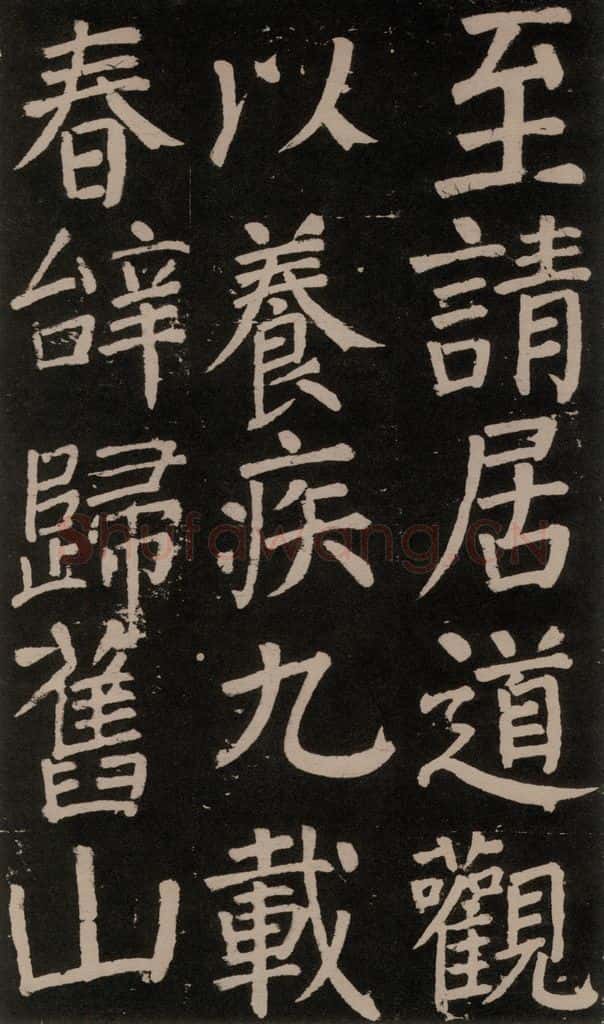 至請居道觀
以養疾九載
春辝歸舊山
Shufawang.CN